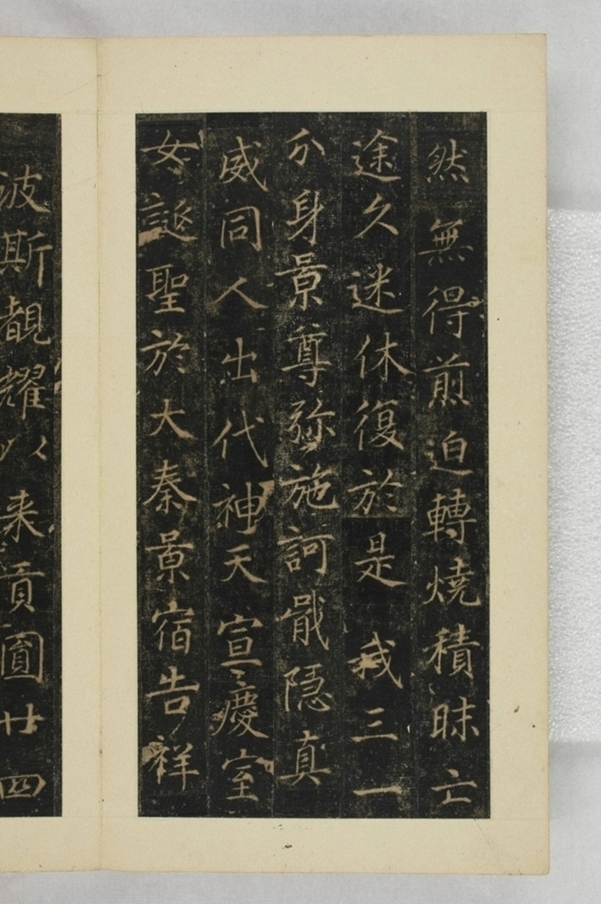 然無得煎迫轉燒積昧亡
途久迷休復於是我三一
分身景尊弥施訶戢隱真
威同人出代神天宣慶室
女誕聖於大秦景宿告祥
波斯覩耀以来貢圓廿四